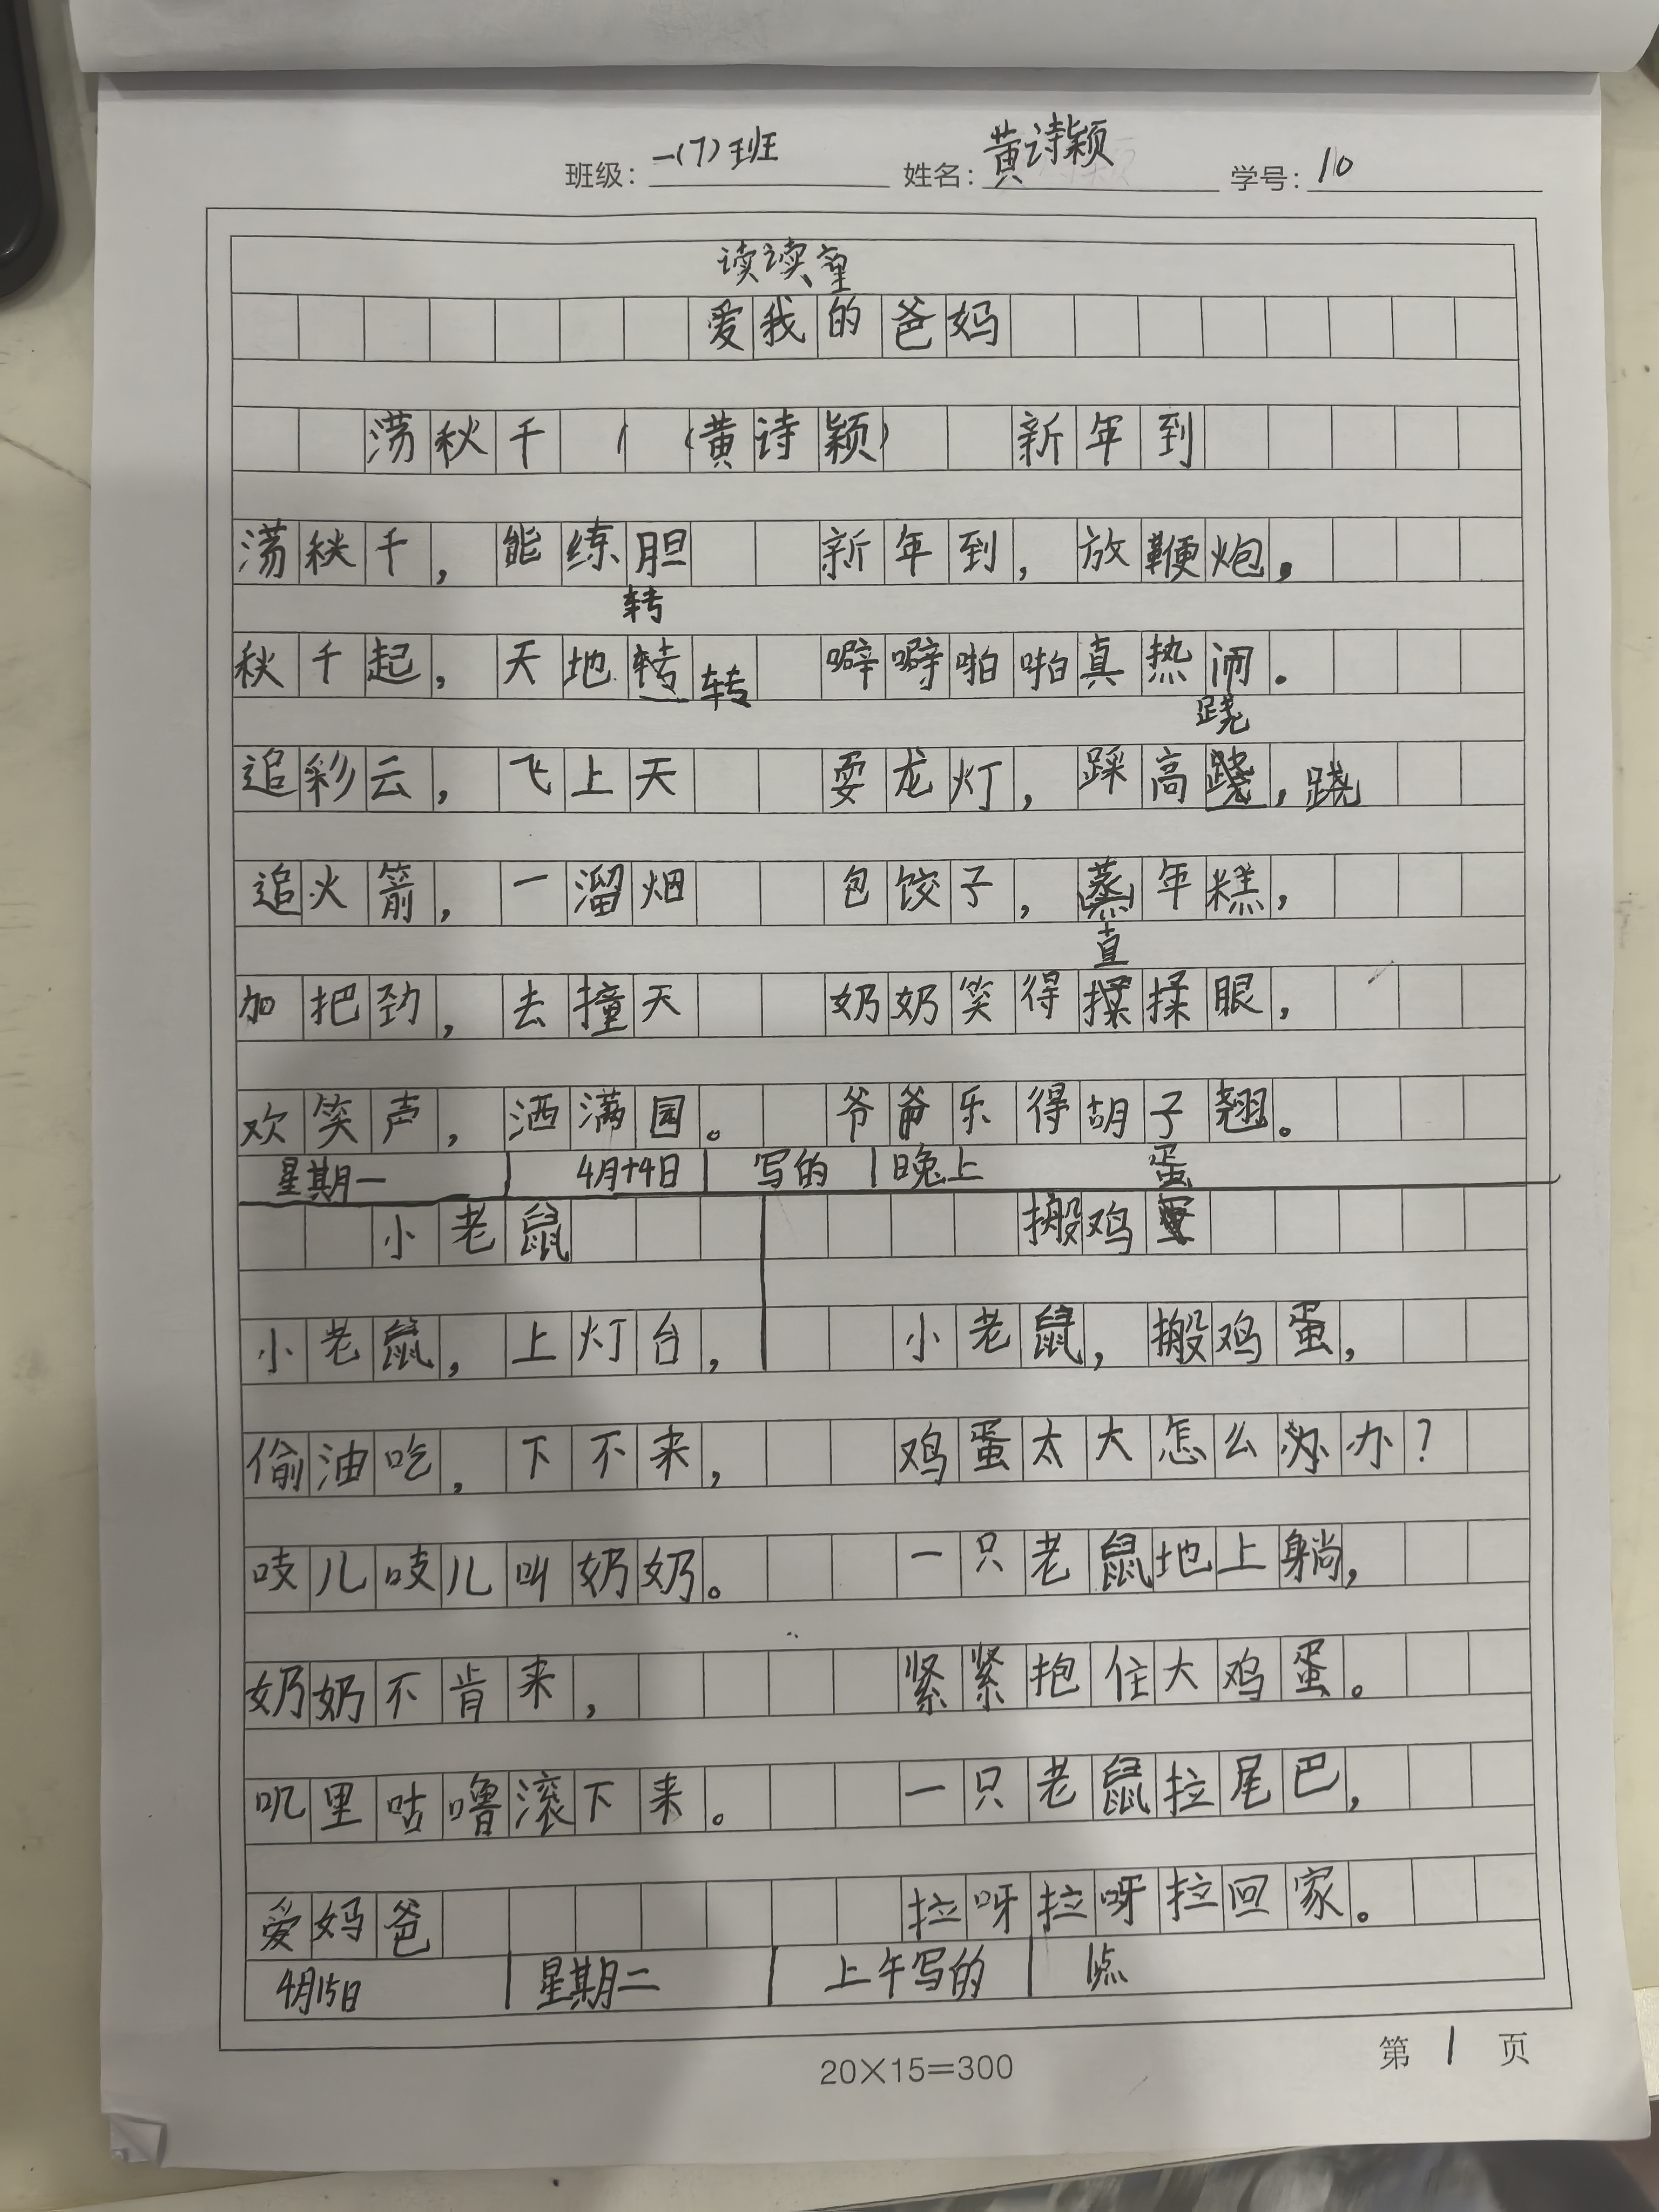 班级：一(7)班 姓名：黄诗颖 学号：10
读读童
爱我的爸妈
荡秋千 (黄诗颖) 新年到
荡秋千，能练胆 新年到，放鞭炮，
转
秋千起，天地转转 噼噼啪啪真热闹。
跷
追彩云，飞上天 耍龙灯，踩高跷，跷
追火箭，一溜烟 包饺子，蒸年糕，
直
加把劲，去撞天 奶奶笑得揉揉眼，
欢笑声，洒满园。 爷爷乐得胡子翘。
星期一 4月14日 写的 晚上
蛋
小老鼠 搬鸡蛋
小老鼠，上灯台， 小老鼠，搬鸡蛋，
偷油吃，下不来， 鸡蛋太大怎么办办？
吱儿吱儿叫奶奶。 一只老鼠地上躺，
奶奶不肯来， 紧紧抱住大鸡蛋。
叽里咕噜滚下来。 一只老鼠拉尾巴，
爱妈爸 拉呀拉呀拉回家。
4月15日 星期二 上午写的
20×15=300
第 1 页